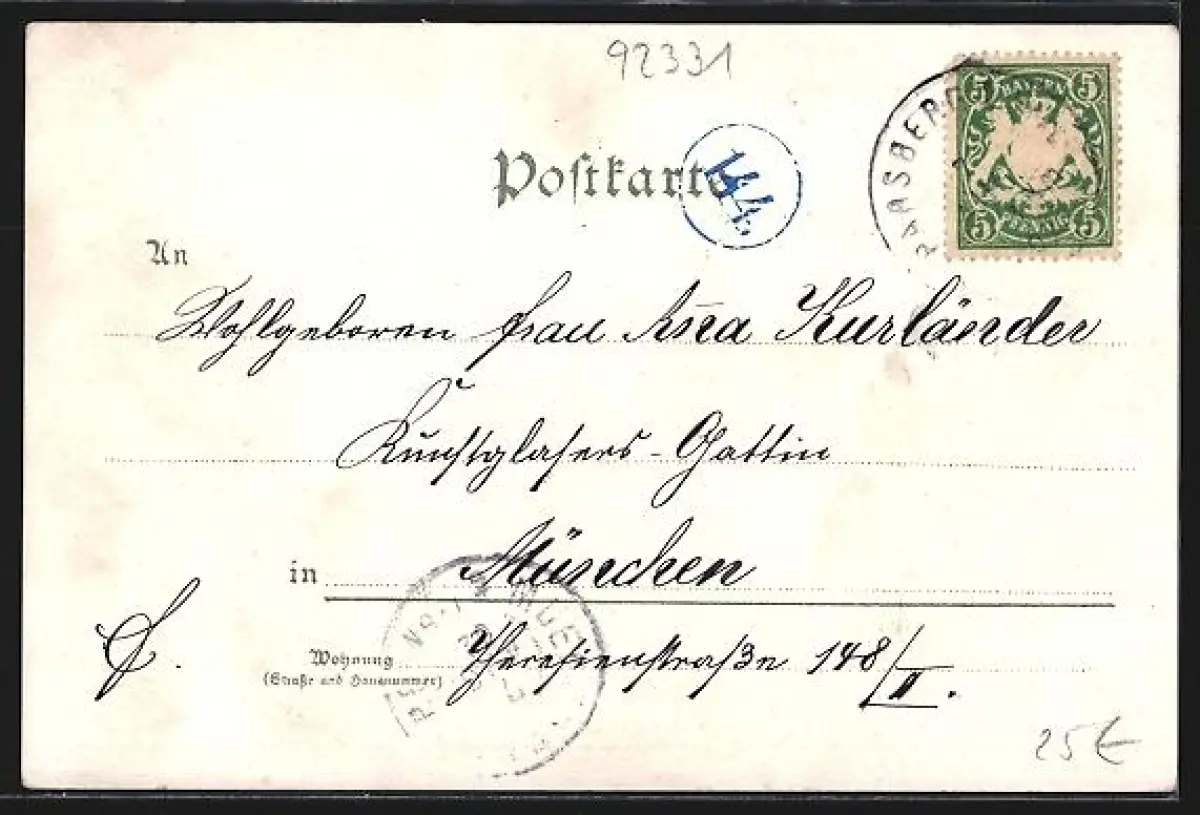 92331
5 BAYERN 5
5 PFENNIG 5
PARSBERG
Postkarte
144.
An
Wohlgeboren Frau Kurländer
Kunstglasers-Gattin
in München
Wohnung Theresienstraße 148/II.
(Straße und Hausnummer)
25 €